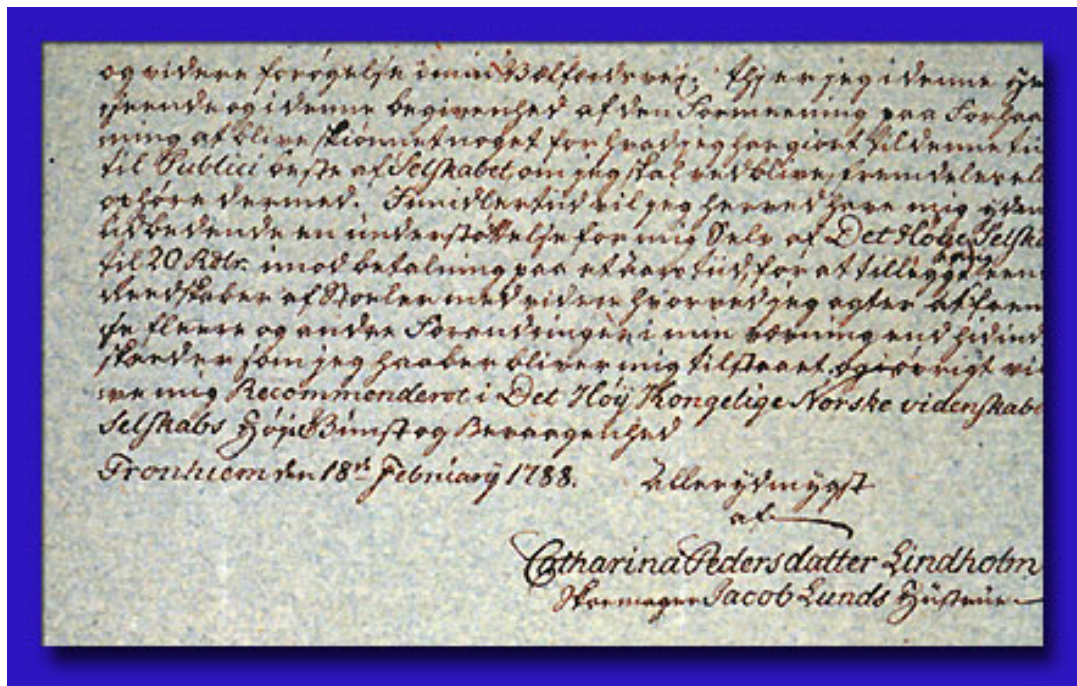 og videre forøgelse i min Vælfærds vej. thj er jeg i denne
seende og i denne begivenhed af den Formeening paa Forhaa
ning at blive skiønnet noget for hvad jeg har giort til denne tiid
til Publici beste af Selskabet om jeg skal vedblive fremdeles ell
ophøre dermed. Jmidlertiid vil jeg herved have mig
udbedende en understøttelse for mig Selv af Det Høye Selska
til 20 Rdlr. imod betalning paa et aars tiid, for at tillegge
Reedskaber af Stoeler med viden hvorved jeg agter at frem
se fleere og andre Forandringer i min vævning end hidind
skeeder som jeg haaber bliver mig tilstaaet, og iøvrigt
mig Recommenderet i Det Høy Kongelige Norske videnskabe
Selskabs Høje Gunst og Bevaagenhed
Tronhiem den 18de Februarÿ 1788. Allerydmygst
af
Catharina Pedersdatter Lindholm
Skoemager Jacob Lunds Hustrue